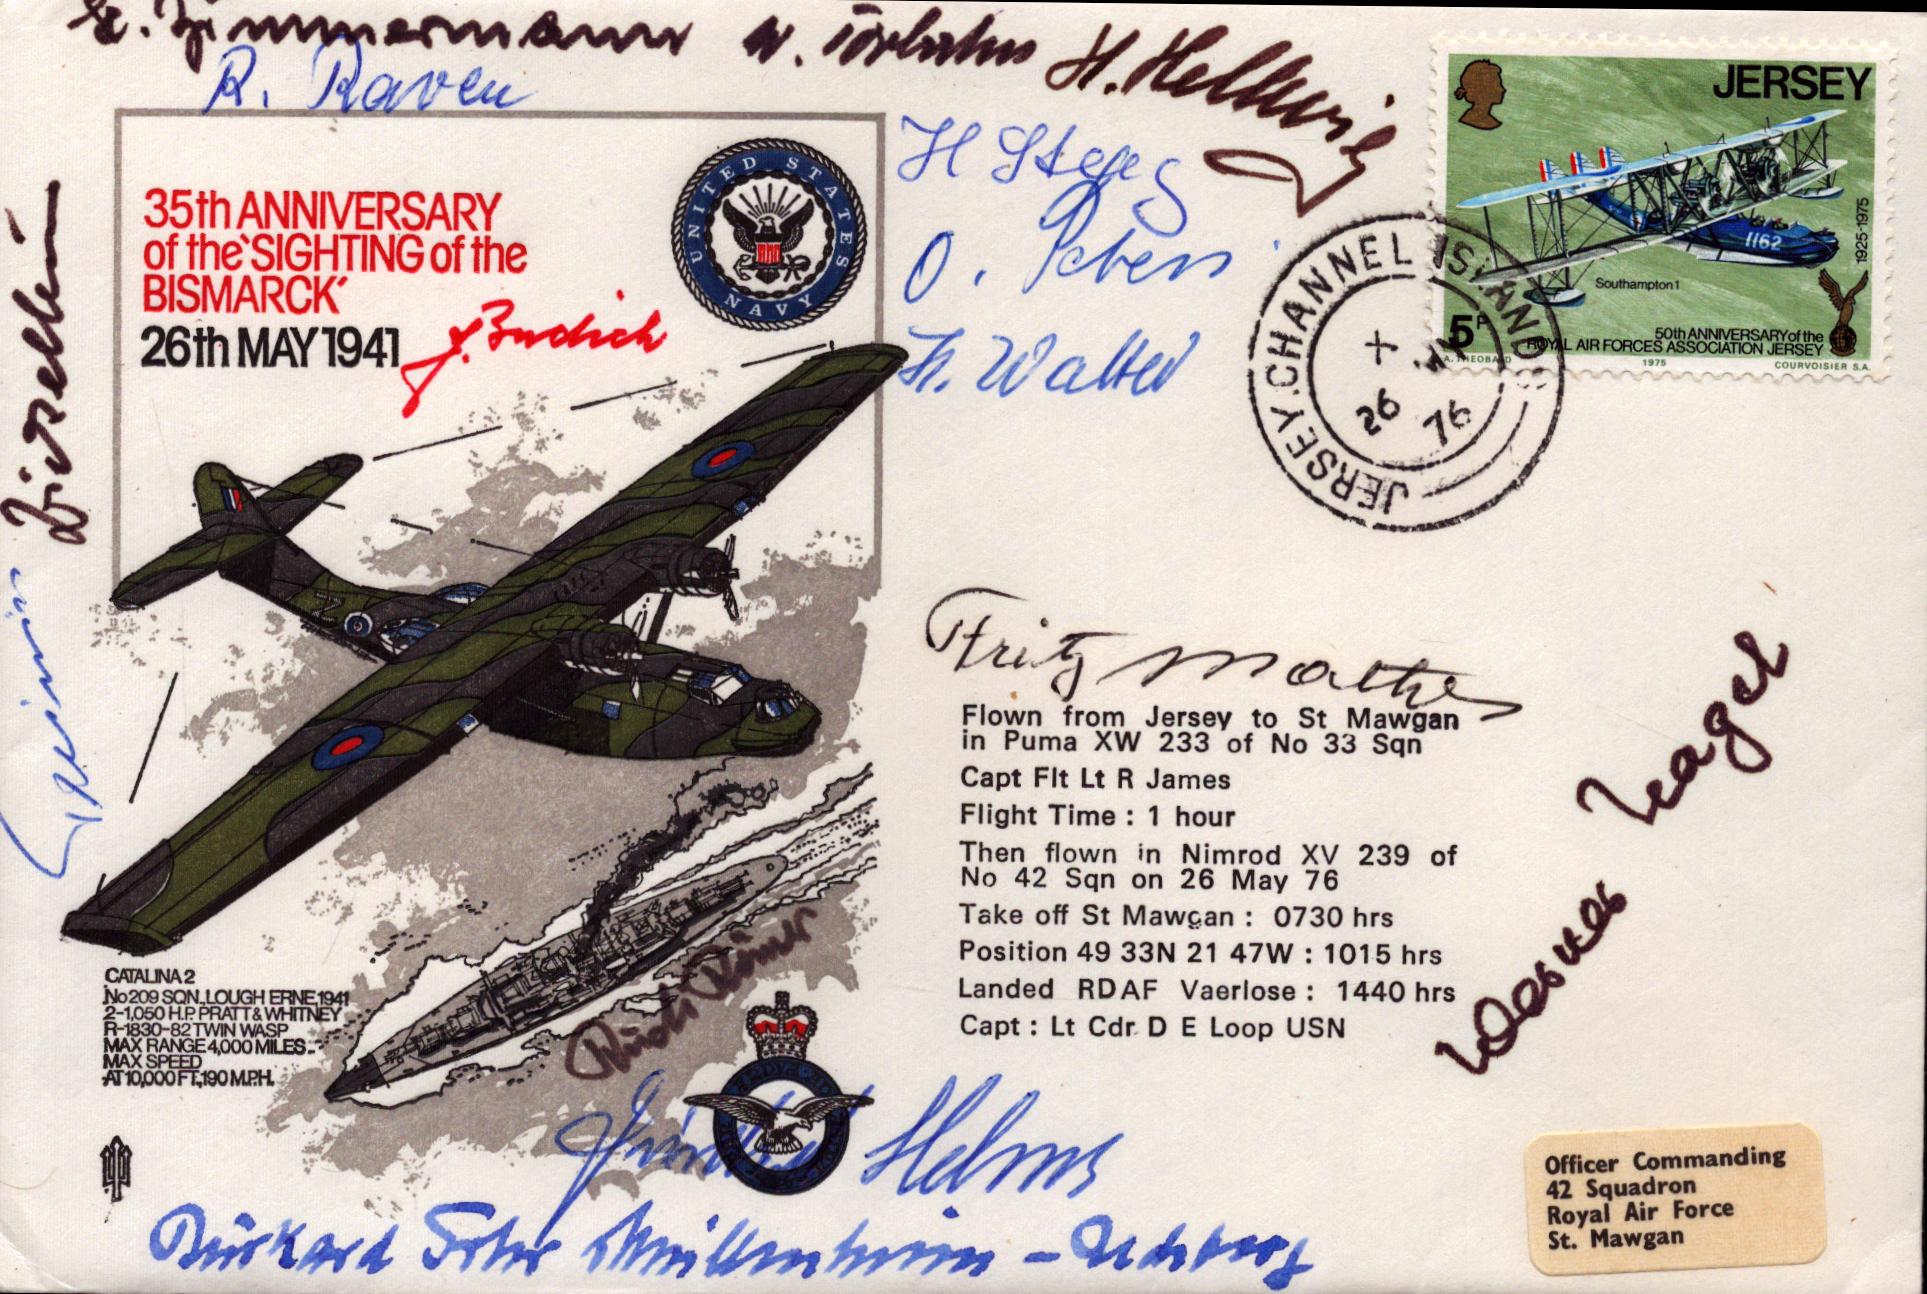 E. Zimmermann
H. Hellwig
R. Raven
JERSEY
1162
1925-1975
Southampton 1
5P
50th ANNIVERSARY of the
ROYAL AIR FORCES ASSOCIATION JERSEY
1975
COURVOISIER S.A.
UNITED STATES
NAVY
35th ANNIVERSARY
of the 'SIGHTING of the
BISMARCK'
26th MAY 1941
J. Budich
H Steeg
O. Peters
H. Walter
JERSEY. CHANNEL ISLANDS
+
26 MY
76
Z
Fritz Mathes
Flown from Jersey to St Mawgan
in Puma XW 233 of No 33 Sqn
Capt Flt Lt R James
Flight Time : 1 hour
Then flown in Nimrod XV 239 of
No 42 Sqn on 26 May 76
Take off St Mawgan : 0730 hrs
Position 49 33N 21 47W : 1015 hrs
Landed RDAF Vaerlose : 1440 hrs
Capt : Lt Cdr D E Loop USN
Werner Nagel
CATALINA 2
No 209 SQN., LOUGH ERNE, 1941
2-1,050 H.P. PRATT & WHITNEY
R-1830-82 TWIN WASP
MAX RANGE 4,000 MILES.
MAX SPEED
AT 10,000 FT, 190 M.P.H.
Rudi Römer
Helms
Burkard Frhr Müllenheim-Rechberg
Officer Commanding
42 Squadron
Royal Air Force
St. Mawgan